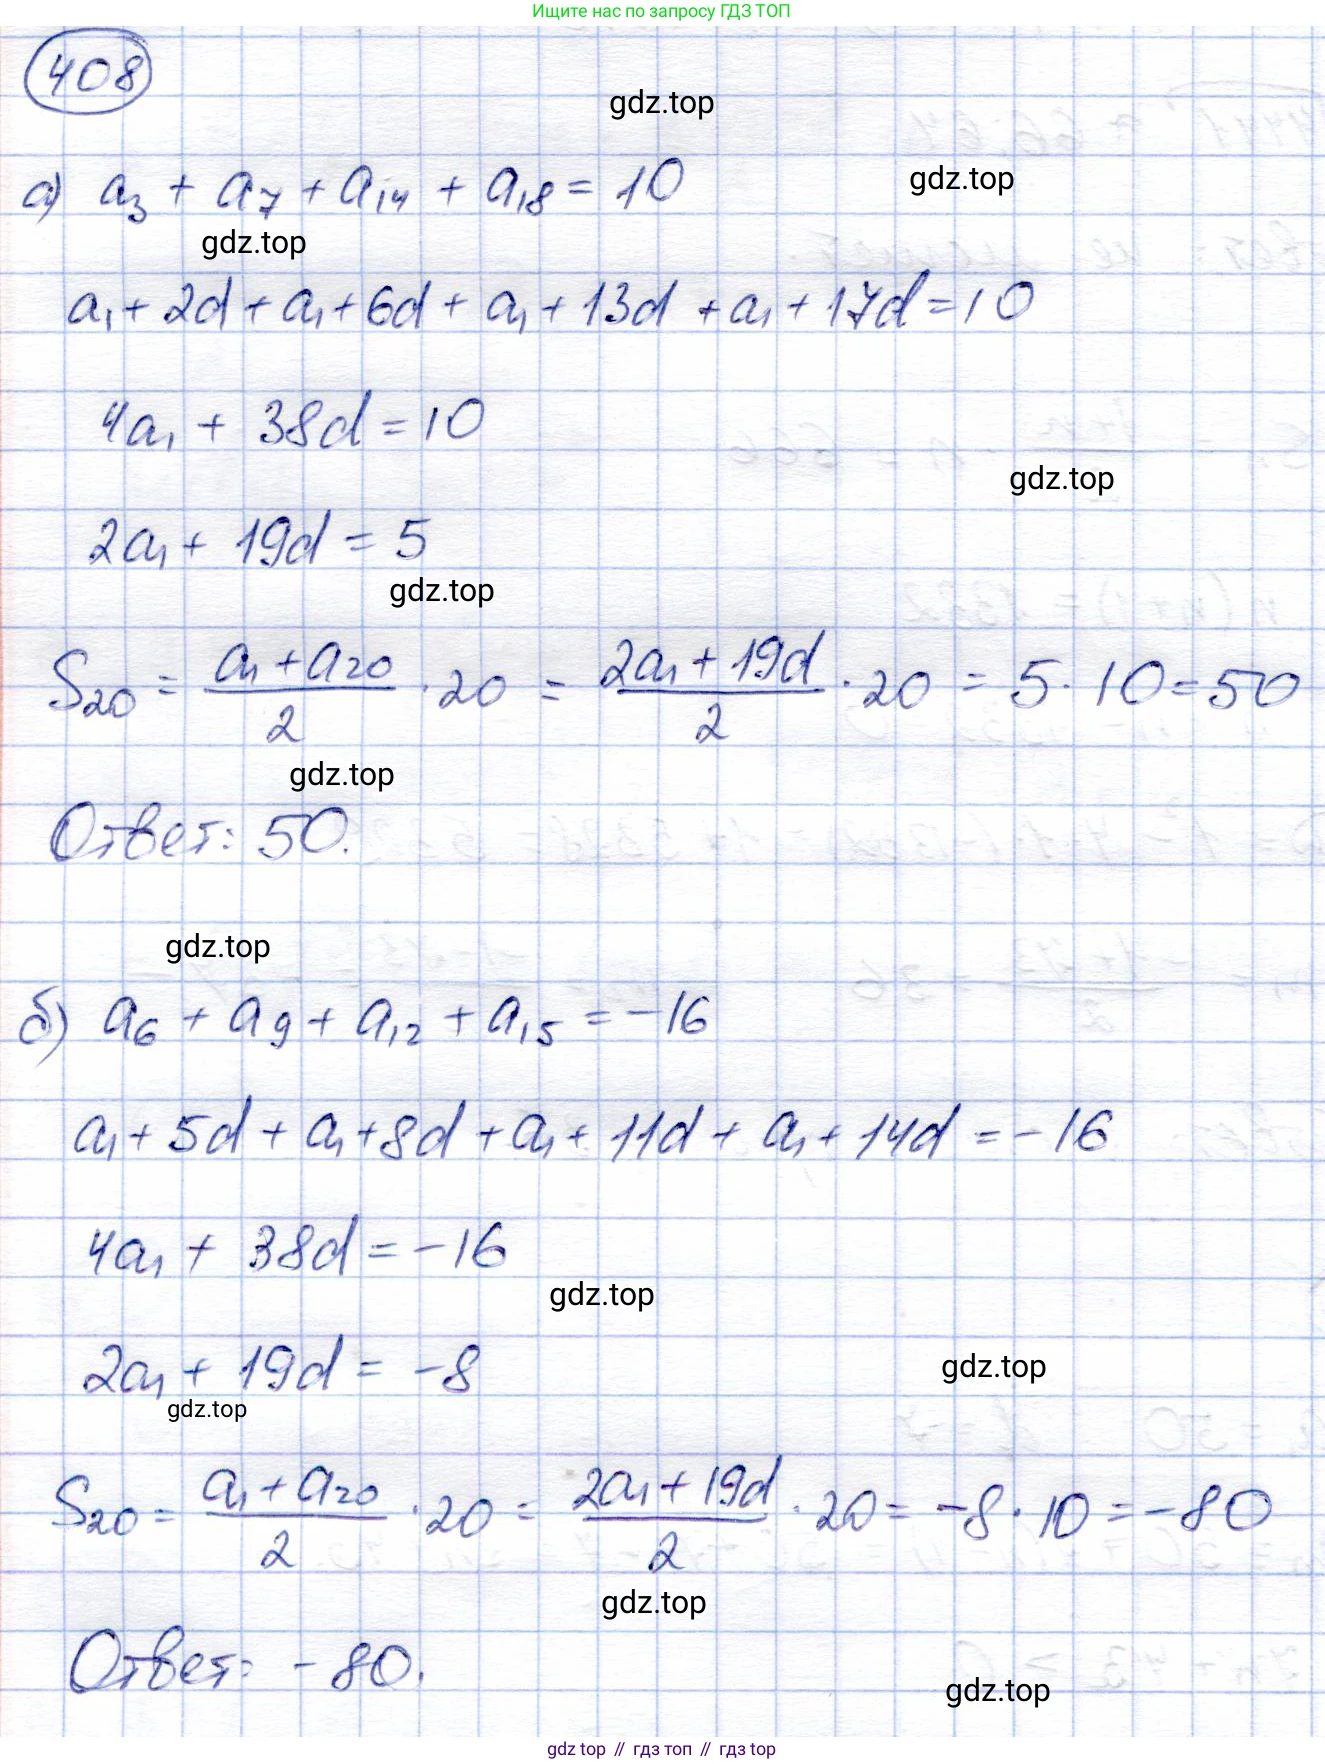 Ищите нас по запросу ГДЗ ТОП
408
gdz.top
а) a₃ + a₇ + a₁₄ + a₁₈ = 10
gdz.top
gdz.top
a₁ + 2d + a₁ + 6d + a₁ + 13d + a₁ + 17d = 10
4a₁ + 38d = 10
gdz.top
2a₁ + 19d = 5
gdz.top
S₂₀ = (a₁ + a₂₀)/2 · 20 = (2a₁ + 19d)/2 · 20 = 5 · 10 = 50
gdz.top
Ответ: 50.
gdz.top
б) a₆ + a₉ + a₁₂ + a₁₅ = -16
a₁ + 5d + a₁ + 8d + a₁ + 11d + a₁ + 14d = -16
4a₁ + 38d = -16
gdz.top
2a₁ + 19d = -8
gdz.top
gdz.top
S₂₀ = (a₁ + a₂₀)/2 · 20 = (2a₁ + 19d)/2 · 20 = -8 · 10 = -80
gdz.top
Ответ: -80.
gdz.top
gdz top // гдз топ // gdz top